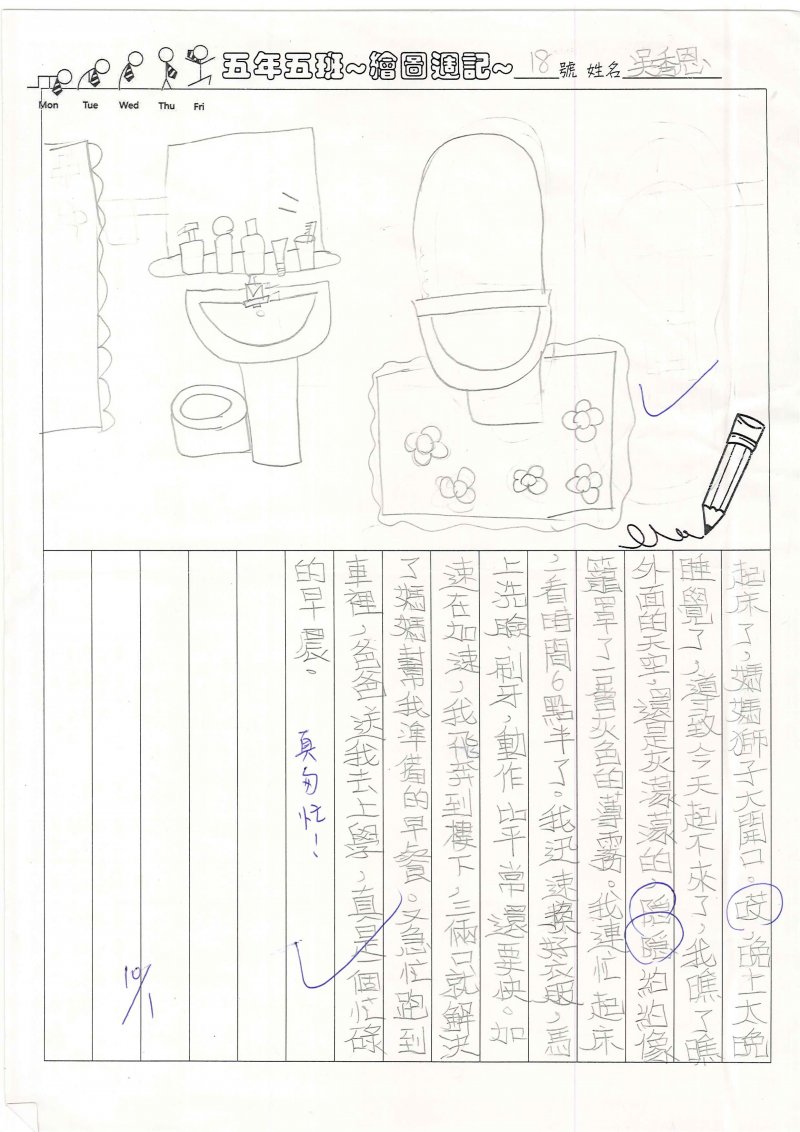 五年五班~繪圖週記~ 18 號 姓名 吳秀恩
Mon Tue Wed Thu Fri
起床了，媽媽獅子大開口。哎，晚上太晚
睡覺了，導致今天起不來了，我瞧了瞧
外面的天空，還是灰濛濛的，隱隱約約像
籠罩了一層灰色的薄霧。我連忙起床
，看時間6點半了。我迅速換好衣服，馬
上洗臉、刷牙，動作比平常還要快。加
速在加速，我飛奔到樓下，三兩口就解決
了媽媽幫我準備的早餐。又急忙跑到
車裡，爸爸送我去上學，真是一個忙碌
的早晨。
真匆忙！
10/1